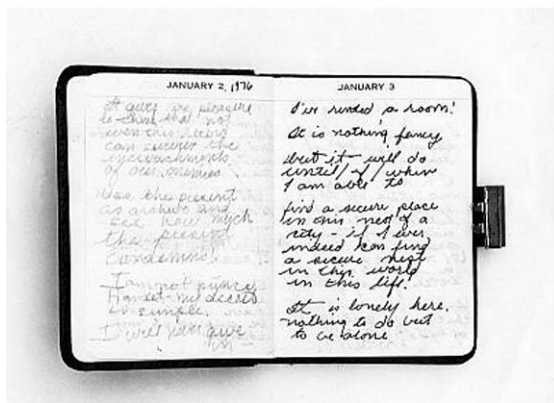 JANUARY 2, 1976
It gives me pleasure
to think that not
even this record
can survive the
encroachments
of our enemies.
Use the present
as archive and
see how much
the present
condemns!
I am not
Hamlet
I will never give
in
JANUARY 3
I've rented a room!
It is nothing fancy
but it will do
until/if/when
I am able to
find a secure place
in this nest of a
city - if I ever
indeed can find
a secure nest
in this world
in this life!
It is lonely here.
nothing to do but
to be alone